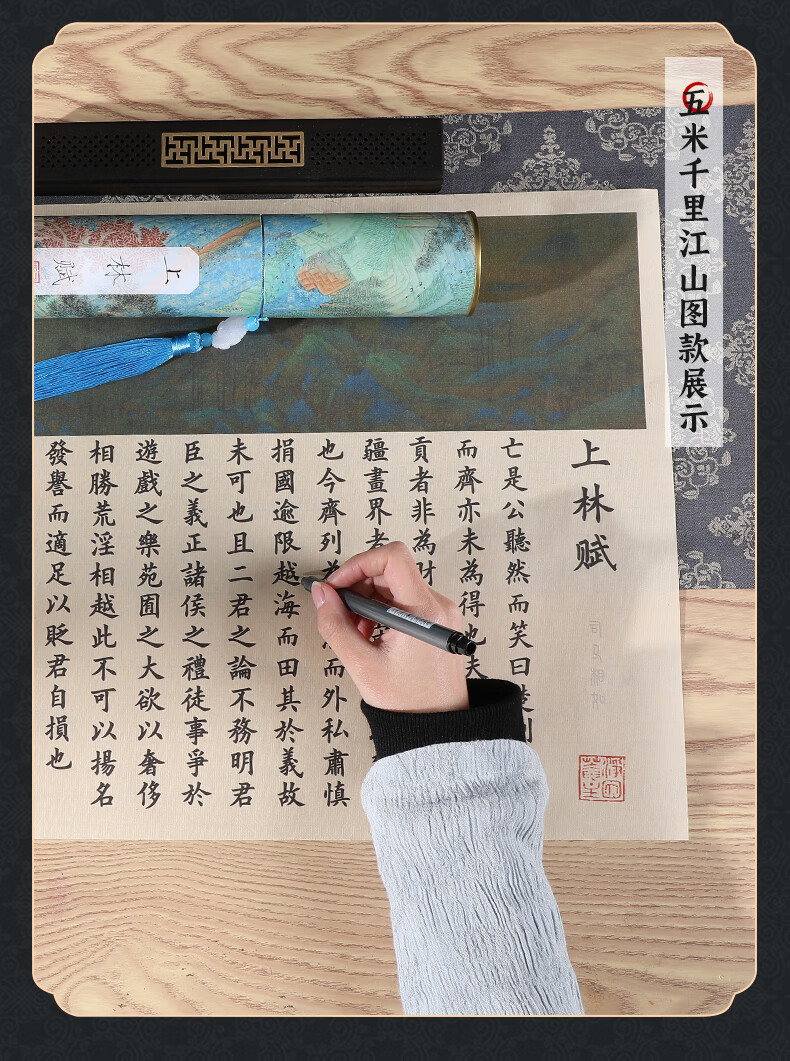 五米千里江山图款展示
上林赋
上林赋
司马相如
亡是公聽然而笑曰
而齊亦未為得也夫
貢者非為財
疆畫界者
也今齊列 而外私肅慎
捐國逾限越海而田其於義故
未可也且二君之論不務明君
臣之義正諸侯之禮徒事爭於
遊戲之樂苑囿之大欲以奢侈
相勝荒淫相越此不可以揚名
發譽而適足以貶君自損也